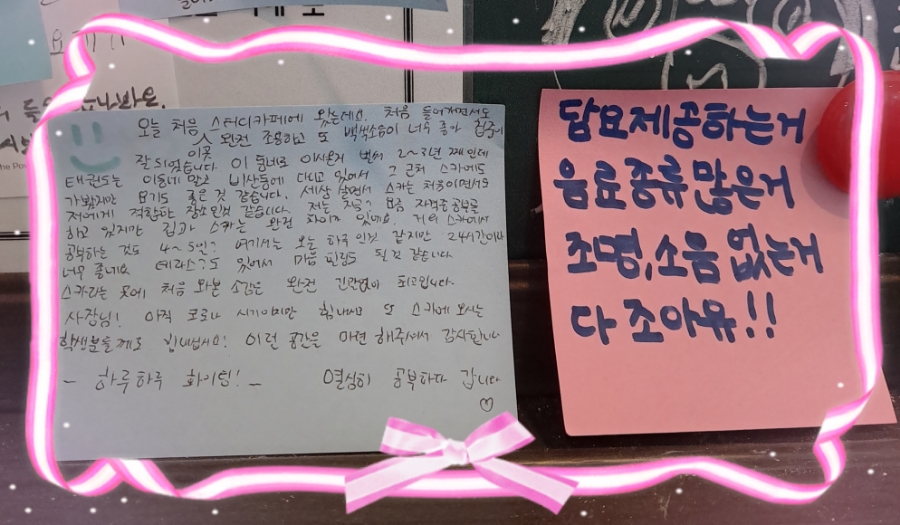 오늘 처음 스터디카페에 왔는데요. 처음 들어가면서도
완전 조용하고 또 백색소음이 너무 좋아 집중이
잘 되었습니다 이 동네로 이사온지 벌써 2~3년 째 인데
이곳
태권도는 이동네 말고 비상동에 다니고 있어서 그 근처 스카에도
가봤지만 여기도 좋은 것 같습니다. 세상 살면서 스카는 처음이면서도
저에게 적합한 장소인것 같습니다. 저는 지금? 요즘 자격증 공부를
하고 있지만 집과 스카는 완전 차이가 있네요. 거의 스카에서
공부하는 것도 4~5번? 여기서는 오늘 하루 인것 같지만 24시간이라
너무 좋네요 테라스?도 있어서 마음 힐링도 될 것 같습니다
스카라는 곳에 처음 와본 소감은 완전 긴말없이 최고입니다
사장님! 아직 코로나 시기이지만 힘내세요 또 스카에 오시는
학생분들께도 힘내십쇼! 이런 공간을 마련 해주셔서 감사합니다
- 하루하루 화이팅! - 열심히 공부하다 갑니다
♡
담요제공하는거
음료종류많은거
조명,소음 없는거
다 조아유!!